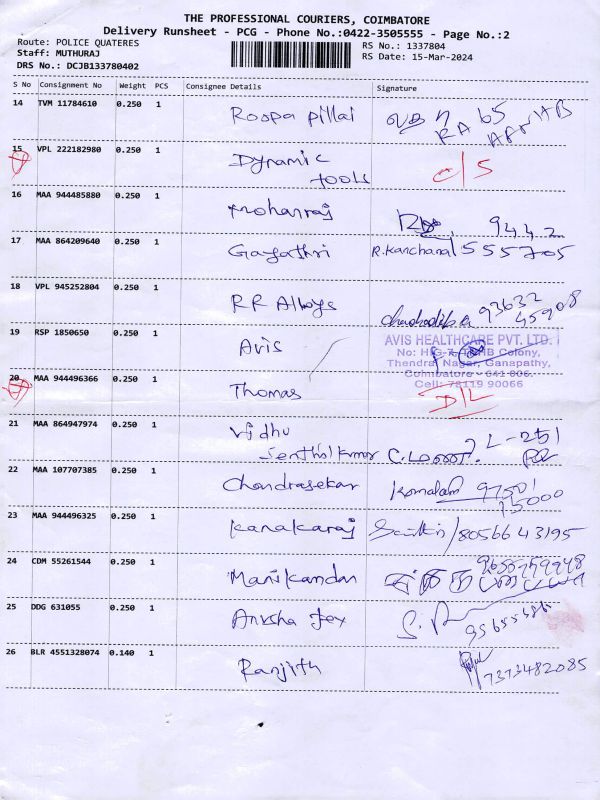 THE PROFESSIONAL COURIERS, COIMBATORE
Delivery Runsheet - PCG - Phone No.:0422-3505555 - Page No.:2
Route: POLICE QUATERES RS No.: 1337804
Staff: MUTHURAJ RS Date: 15-Mar-2024
DRS No.: DCJB133780402
S No Consignment No Weight PCS Consignee Details Signature
14 TVM 11784610 0.250 1 Roopa pillai
15 VPL 222182980 0.250 1 Dynamic C/S
tools
16 MAA 944485880 0.250 1 Mohanraj 9442
17 MAA 864209640 0.250 1 Gayathri R.Kanchana 555705
18 VPL 945252804 0.250 1 RR Alloys 93632
45908
19 RSP 1850650 0.250 1 Avis AVIS HEALTHCARE PVT. LTD.
Colony,
Thendral Nagar, Ganapathy,
20 MAA 944496366 0.250 1 Coimbatore - 641 006.
Cell: 78119 90066
Thomas D/L
21 MAA 864947974 0.250 1 Vidhu L-251
Senthilkumar
22 MAA 107707385 0.250 1 Chandrasekar Komalam 97501
15000
23 MAA 944496325 0.250 1 Kanakaraj 8056643195
24 CDM 55261544 0.250 1 Manikandan
25 DDG 631055 0.250 1 Anusha
26 BLR 4551328074 0.140 1 Ranjith 7373482085